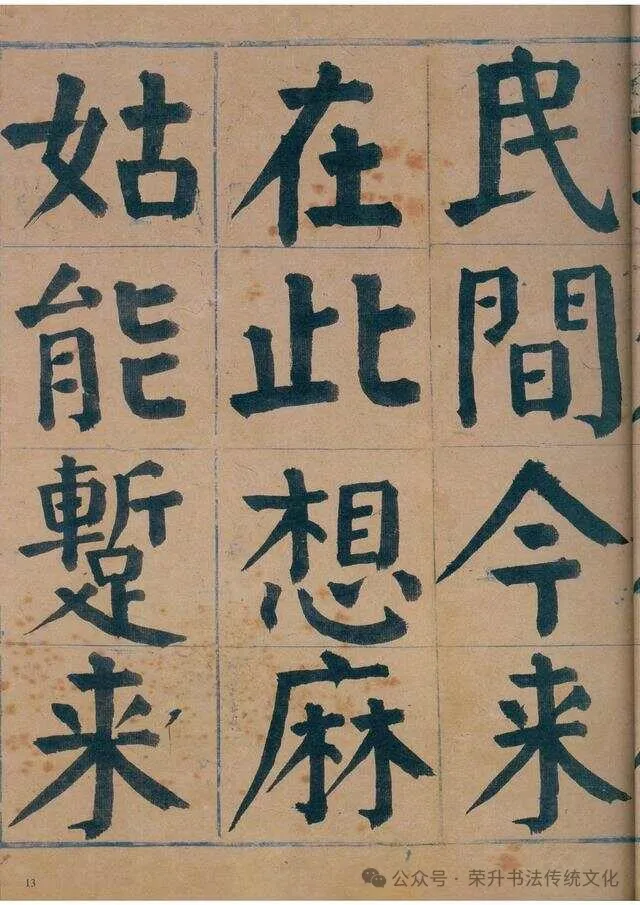 民間今来
在此想麻
姑能蹔来
13
公众号·荣升书法传统文化